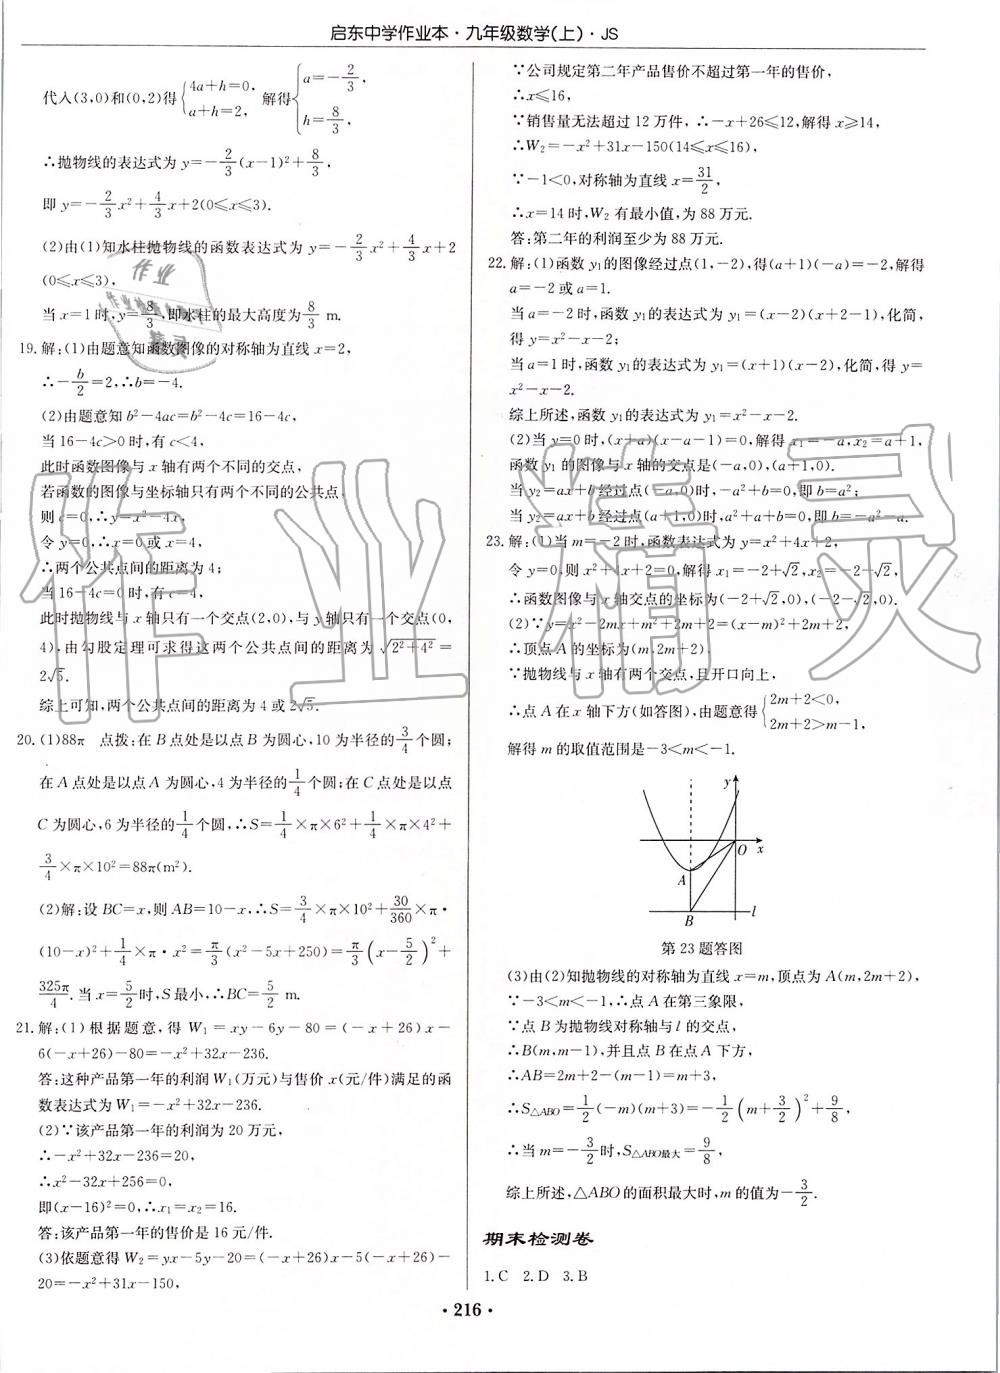 启东中学作业本·九年级数学(上)·JS
代入(3,0)和(0,2)得{4a+h=0, a+h=2, 解得{a=-2/3, h=8/3,
∴抛物线的表达式为 y=-2/3(x-1)²+8/3,
即 y=-2/3x²+4/3x+2(0≤x≤3).
(2)由(1)知水柱抛物线的函数表达式为 y=-2/3x²+4/3x+2
(0≤x≤3),
当 x=1时,y=8/3,即水柱的最大高度为8/3 m.
19.解:(1)由题意知函数图像的对称轴为直线 x=2,
∴-b/2=2,∴b=-4.
(2)由题意知 b²-4ac=b²-4c=16-4c,
当 16-4c>0时,有 c<4,
此时函数图像与 x 轴有两个不同的交点,
若函数的图像与坐标轴只有两个不同的公共点,
则 c=0,∴y=x²-4x,
令 y=0,∴x=0或 x=4.
∴两个公共点间的距离为 4;
当 16-4c=0时,有 c=4,
此时抛物线与 x 轴只有一个交点(2,0),与 y轴只有一个交点(0,
4),由勾股定理可求得这两个公共点间的距离为√(2²+4²)=
2√5.
综上可知,两个公共点间的距离为 4 或 2√5.
20.(1)88π 点拨:在 B 点处是以点 B 为圆心,10 为半径的3/4个圆;
在 A 点处是以点 A 为圆心,4 为半径的1/4个圆;在 C 点处是以点
C 为圆心,6 为半径的1/4个圆,∴S=1/4×π×6²+1/4×π×4²+
3/4×π×10²=88π(m²).
(2)解:设 BC=x,则 AB=10-x,∴S=3/4×π×10²+30/360×π·
(10-x)²+1/4×π·x²=π/3(x²-5x+250)=π/3(x-5/2)²+
325π/4.当 x=5/2时,S 最小,∴BC=5/2 m.
21.解:(1)根据题意,得 W₁=xy-6y-80=(-x+26)x-
6(-x+26)-80=-x²+32x-236.
答:这种产品第一年的利润 W₁(万元)与售价 x(元/件)满足的函
数表达式为 W₁=-x²+32x-236.
(2)∵该产品第一年的利润为 20 万元,
∴-x²+32x-236=20,
∴x²-32x+256=0,
即(x-16)²=0,∴x₁=x₂=16.
答:该产品第一年的售价是 16 元/件.
(3)依题意得 W₂=yx-5y-20=(-x+26)x-5(-x+26)-
20=-x²+31x-150,
∵公司规定第二年产品售价不超过第一年的售价,
∴x≤16,
∵销售量无法超过 12 万件,∴-x+26≤12,解得 x≥14,
∴W₂=-x²+31x-150(14≤x≤16),
∵-1<0,对称轴为直线 x=31/2,
∴x=14 时,W₂ 有最小值,为 88 万元.
答:第二年的利润至少为 88 万元.
22.解:(1)函数 y₁的图像经过点(1,-2),得(a+1)(-a)=-2,解得
a=-2 或 a=1.
当 a=-2 时,函数 y₁的表达式为 y₁=(x-2)(x+2-1),化简,
得 y=x²-x-2;
当 a=1 时,函数 y₁的表达式为 y₁=(x+1)(x-2),化简,得 y=
x²-x-2.
综上所述,函数 y₁的表达式为 y₁=x²-x-2.
(2)当 y=0 时,(x+a)(x-a-1)=0,解得 x₁=-a,x₂=a+1,
函数 y₁ 的图像与 x 轴的交点是(-a,0),(a+1,0).
当 y₂=ax+b经过点(-a,0)时,-a²+b=0,即 b=a²;
当 y₂=ax+b经过点(a+1,0)时,a²+a+b=0,即 b=-a²-a.
23.解:(1)当 m=-2 时,函数表达式为 y=x²+4x+2,
令 y=0,则 x²+4x+2=0,解得 x₁=-2+√2,x₂=-2-√2,
∴函数图像与 x 轴交点的坐标为(-2+√2,0),(-2-√2,0).
(2)∵y=x²-2mx+m²+2m+2=(x-m)²+2m+2,
∴顶点 A 的坐标为(m,2m+2).
∵抛物线与 x 轴有两个交点,且开口向上,
∴点 A 在 x 轴下方(如答图),由题意得{2m+2<0, 2m+2>m-1,
解得 m 的取值范围是-3<m<-1.
y
O x
A
B l
第 23 题答图
(3)由(2)知抛物线的对称轴为直线 x=m,顶点为 A(m,2m+2),
∵-3<m<-1,∴点 A 在第三象限,
∵点 B 为抛物线对称轴与 l 的交点,
∴B(m,m-1),并且点 B 在点 A 下方,
∴AB=2m+2-(m-1)=m+3,
∴S△ABO=1/2(-m)(m+3)=-1/2(m+3/2)²+9/8,
∴当 m=-3/2时,S△ABO最大=9/8,
综上所述,△ABO 的面积最大时,m 的值为-3/2.
期末检测卷
1.C 2.D 3.B
·216·
作业精灵